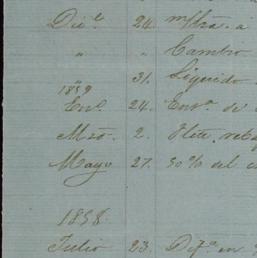 Dic.e 24. m/tra. a
" " Cambio
" 31. Liquido
1859
En.o 24. Env.o de
Mzo. 2. Flete, reb
Mayo 27. 50% del c
1858
Julio 23. Dif.a en